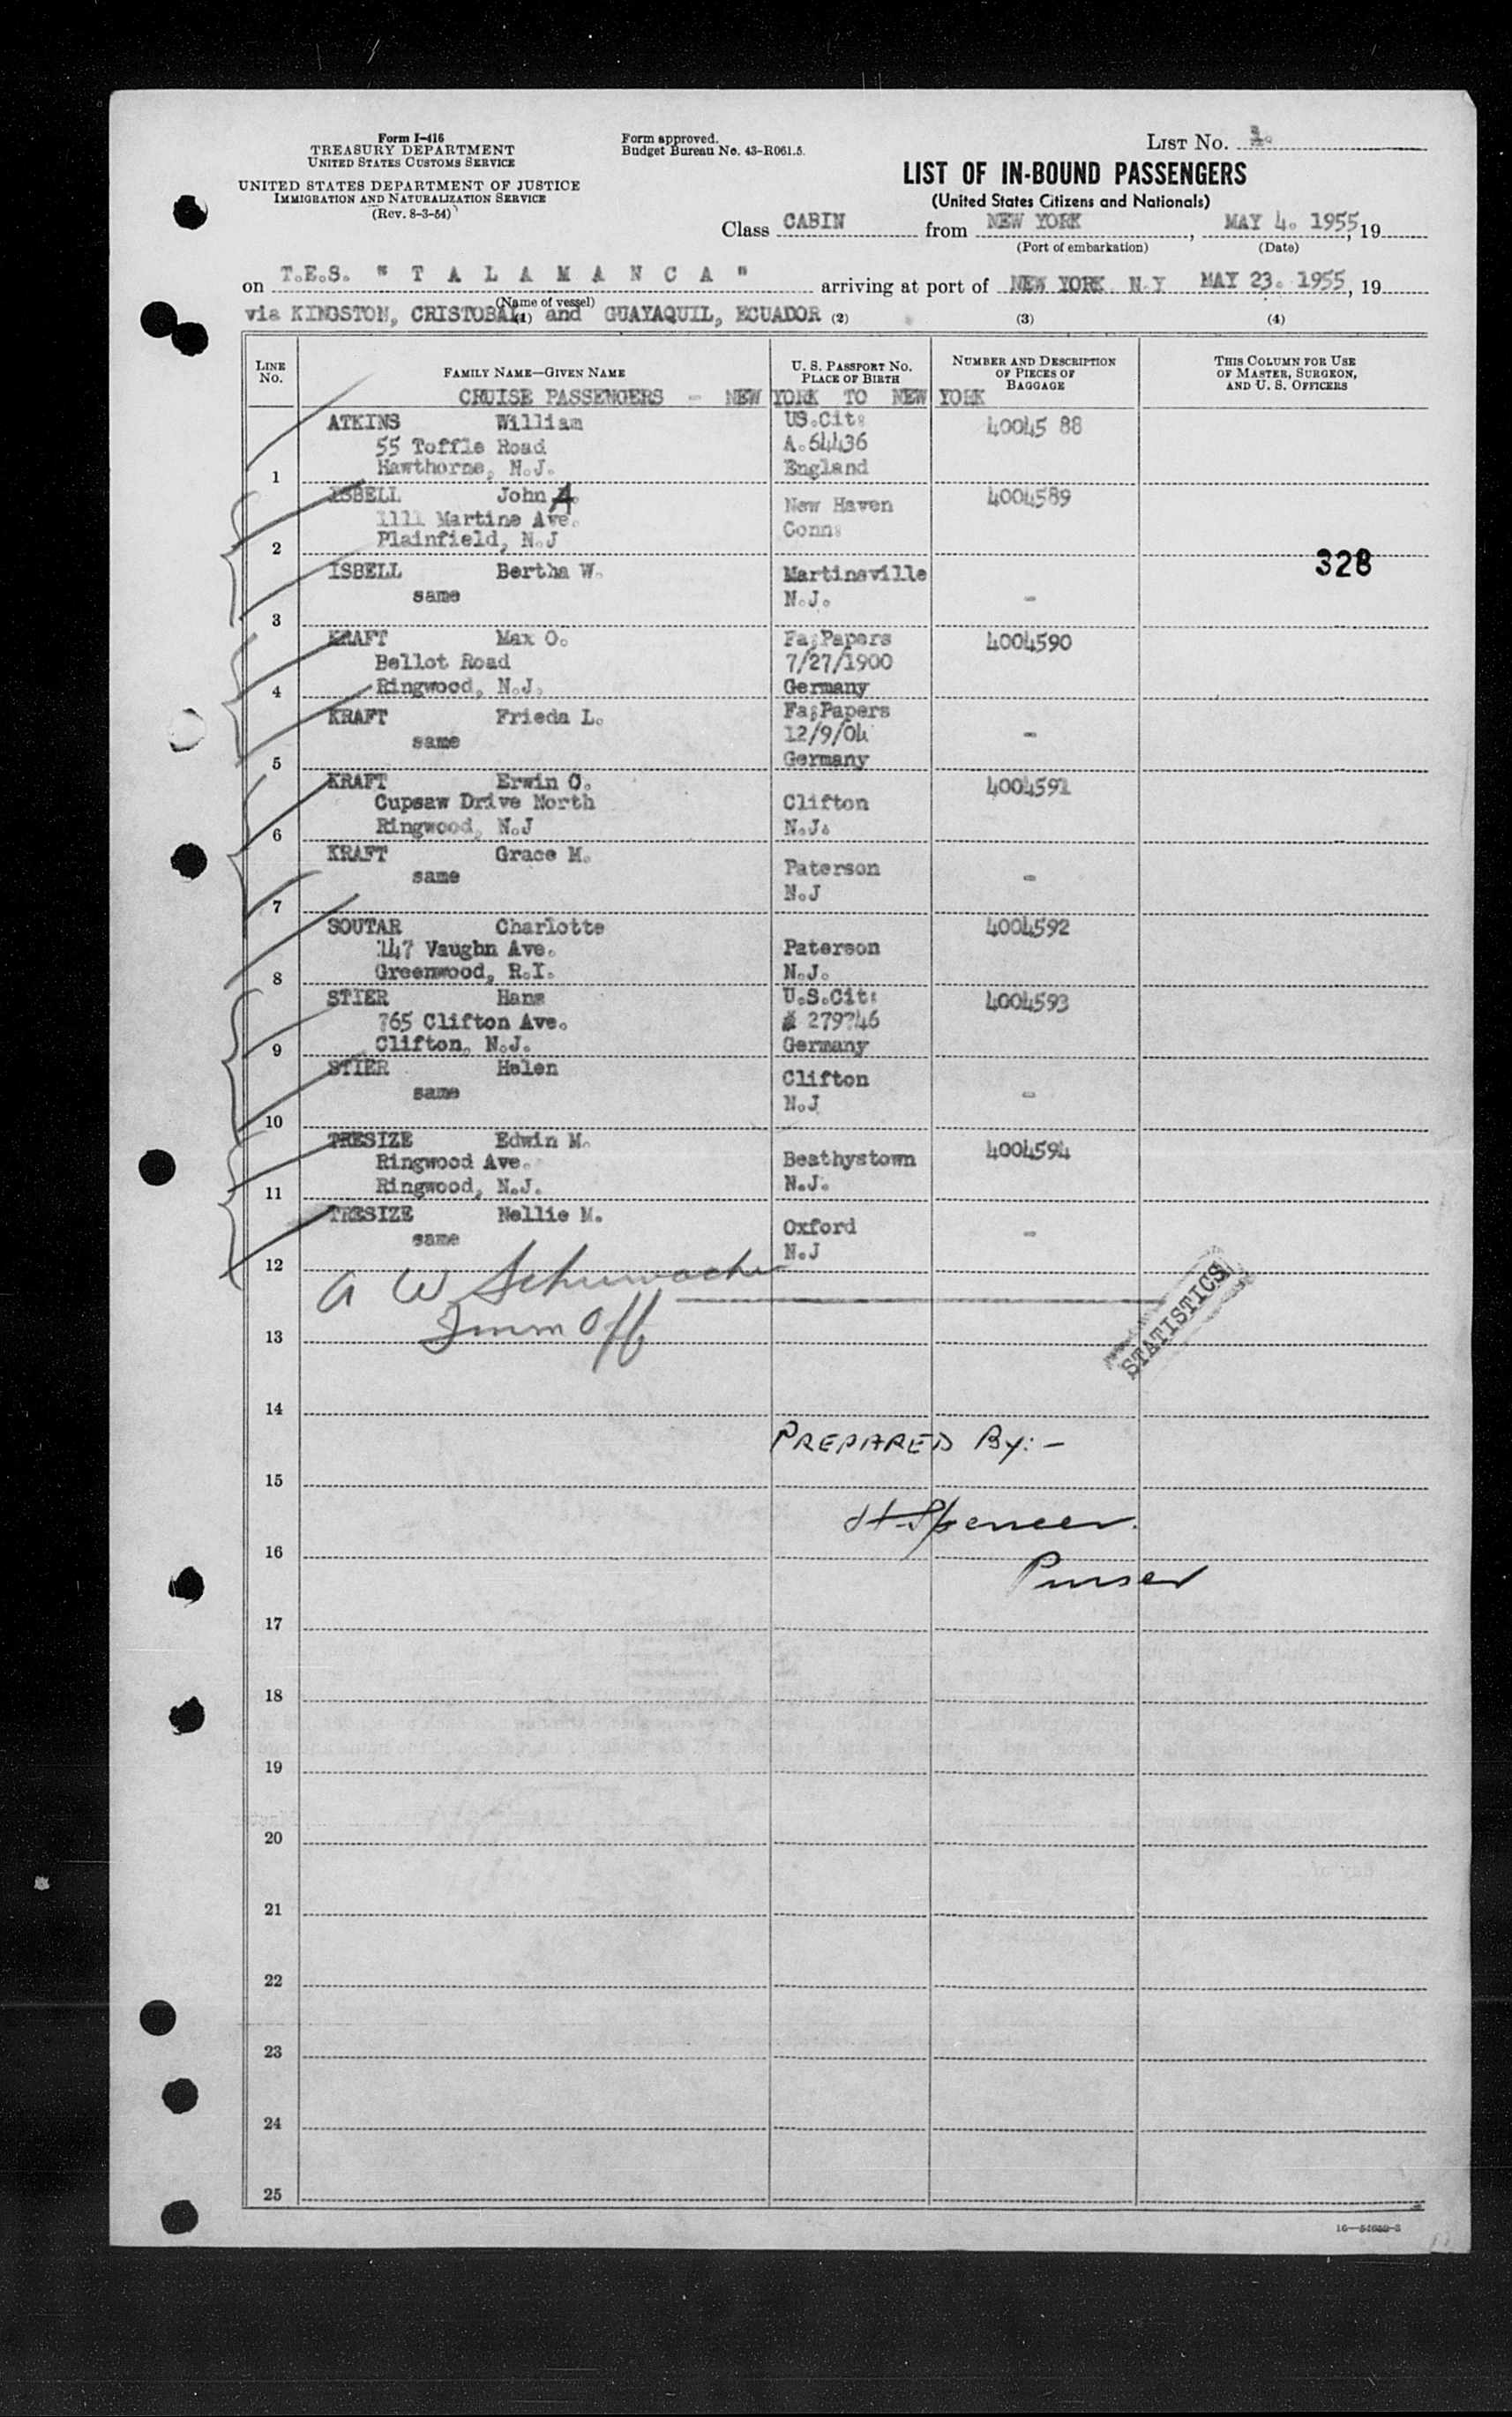 Form I-416
TREASURY DEPARTMENT
UNITED STATES CUSTOMS SERVICE
UNITED STATES DEPARTMENT OF JUSTICE
IMMIGRATION AND NATURALIZATION SERVICE
(Rev. 8-3-54)
Form approved.
Budget Bureau No. 43-R061.5.
LIST NO. 1.
LIST OF IN-BOUND PASSENGERS
(United States Citizens and Nationals)
Class CABIN from NEW YORK, MAY 4. 1955, 19
(Port of embarkation) (Date)
on T.E.S. " T A L A M A N C A " arriving at port of NEW YORK N.Y MAY 23. 1955, 19
(Name of vessel)
via KINGSTON, CRISTOBAL and GUAYAQUIL, ECUADOR
(1) (2) (3) (4)
LINE NO. FAMILY NAME—GIVEN NAME U. S. PASSPORT NO. PLACE OF BIRTH NUMBER AND DESCRIPTION OF PIECES OF BAGGAGE THIS COLUMN FOR USE OF MASTER, SURGEON, AND U. S. OFFICERS
CRUISE PASSENGERS - NEW YORK TO NEW YORK
ATKINS William US.Cit: 40045 88
55 Toffle Road A.64436
1 Hawthorne, N.J. England
ISBELL John A. New Haven 4004589
1111 Martine Ave. Conn:
2 Plainfield, N.J
328
ISBELL Bertha W. Martinsville
same N.J. -
3
KRAFT Max O. Fa;Papers 4004590
Bellot Road 7/27/1900
4 Ringwood, N.J. Germany
KRAFT Frieda L. Fa;Papers
same 12/9/04 -
5 Germany
KRAFT Erwin O. 4004591
Cupsaw Drive North Clifton
6 Ringwood, N.J N.J.
KRAFT Grace M. Paterson
same N.J -
7
SOUTAR Charlotte 4004592
147 Vaughn Ave. Paterson
8 Greenwood, R.I. N.J.
STIER Hans U.S.Cit: 4004593
765 Clifton Ave. # 279746
9 Clifton, N.J. Germany
STIER Helen Clifton
same N.J -
10
TRESIZE Edwin M. 4004594
Ringwood Ave. Beathystown
11 Ringwood, N.J. N.J.
TRESIZE Nellie M. Oxford
same N.J -
12
A W Schumacher
Imm Off
STATISTICS
13
14
PREPARED By:-
15
H. Spencer.
16
Purser
17
18
19
20
21
22
23
24
25